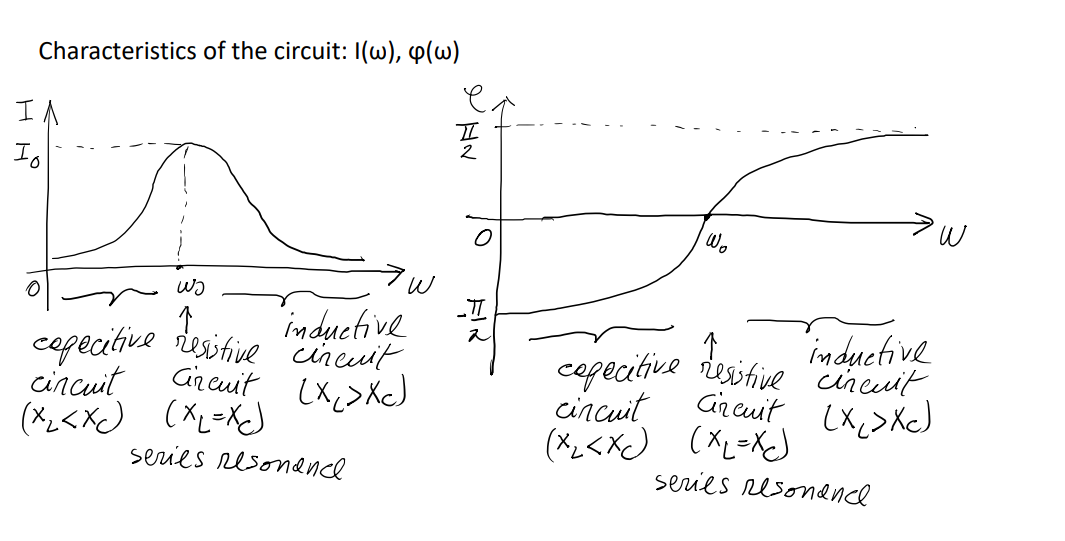 Characteristics of the circuit: I(ω), φ(ω)
I
I₀
0
ω₀
ω
capacitive circuit (X_L<X_C)
resistive circuit (X_L=X_C)
inductive circuit (X_L>X_C)
series resonance
φ
π/2
0
-π/2
ω₀
ω
capacitive circuit (X_L<X_C)
resistive circuit (X_L=X_C)
inductive circuit (X_L>X_C)
series resonance